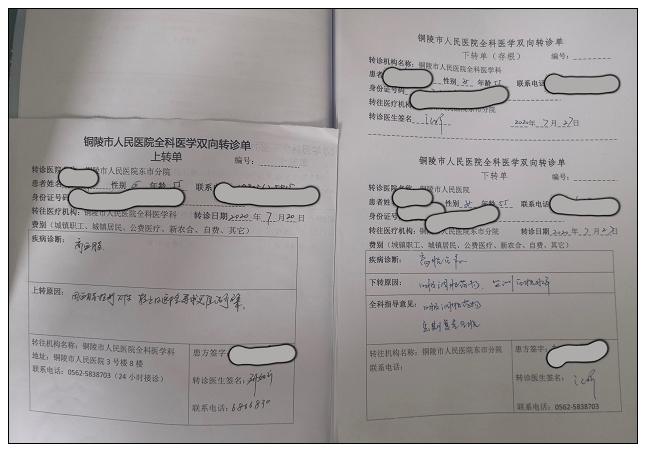 铜陵市人民医院全科医学双向转诊单
上转单
编号：
转诊医院 铜陵市人民医院东市分院
患者姓名 性别 女 年龄 55 联系
身份证号
转往医疗机构：铜陵市人民医院全科医学科 转诊日期 2020 年 7 月 20 日
费别（城镇职工、城镇居民、公费医疗、新农合、自费、其它）
疾病诊断：
高血脂
上转原因：
转往机构名称：铜陵市人民医院全科医学科
地址：铜陵市人民医院 3 号楼 8 楼
联系电话：0562-5838703（24 小时接诊）
患方签字
转诊医生签名：
联系电话：6866830
铜陵市人民医院全科医学双向转诊单
下转单（存根） 编号：
转诊机构名称：铜陵市人民医院全科医学科
患者 性别 女 年龄 55 联系电话
身份证号码
转往医疗机构 东市分院
转诊医生签名 2020 年 7 月 27 日
铜陵市人民医院全科医学双向转诊单
下转单 编号：
转诊医院名称：铜陵市人民医院
患者姓 性别 女 年龄 55 联系电话
身份证号
转往医疗机构：铜陵市人民医院东市分院 转诊日期 2020 年 7 月 27 日
费别（城镇职工、城镇居民、公费医疗、新农合、自费、其它）
疾病诊断：
下转原因：
全科指导意见：
转往机构名称：铜陵市人民医院东市分院
联系电话：
患方签字：
转诊医生签名：
联系电话：0562-5838703